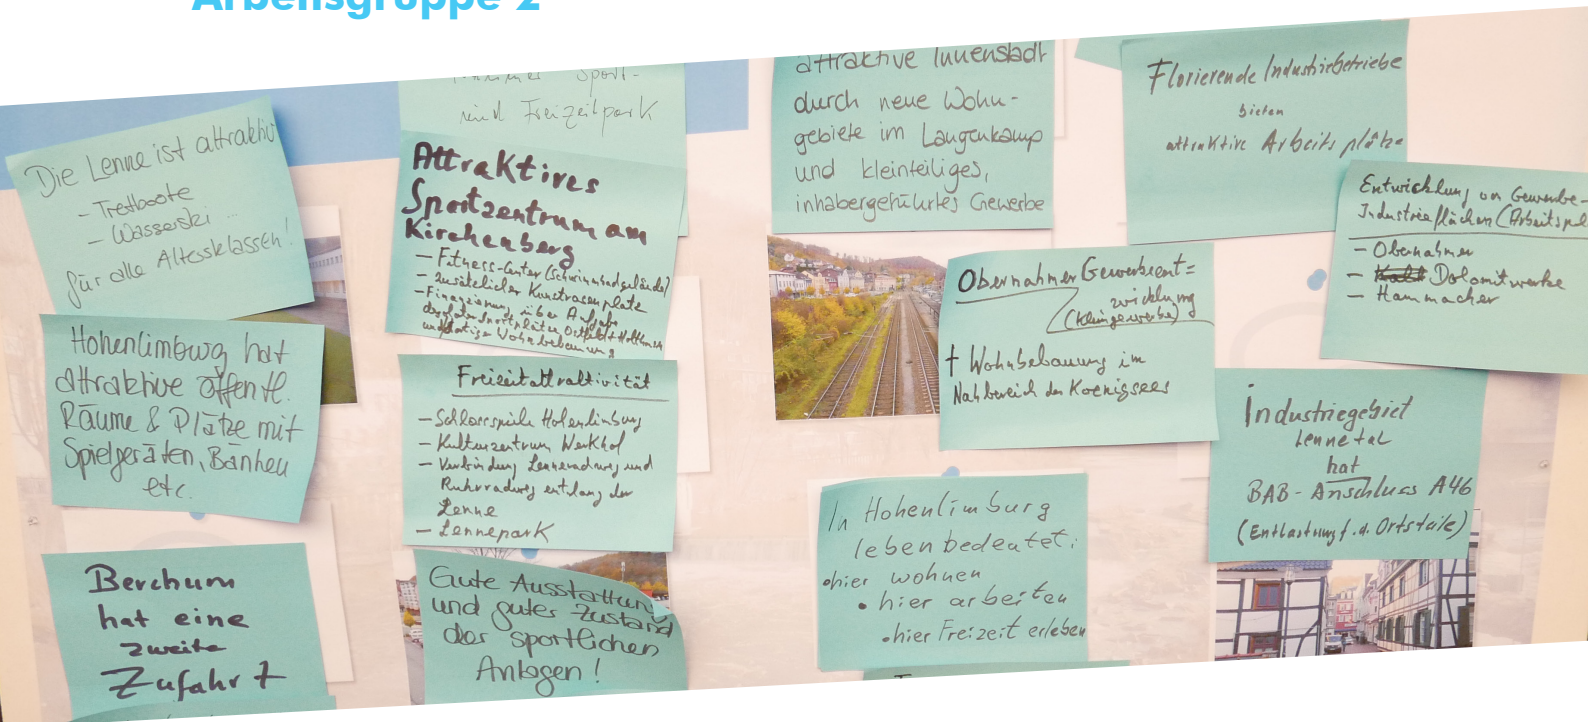 Arbeitsgruppe 2
Die Lenne ist attraktiv
- Tretboote
- Wasserski ...
für alle Altersklassen!
Hohenlimburg hat
attraktive öffentl.
Räume & Plätze mit
Spielgeräten, Bänken
etc.
Berchum
hat eine
zweite
Zufahrt
Sport-
und Freizeitpark
Attraktives
Sportzentrum am
Kirchenberg
- Fitness-Center (Schwimmbadgelände)
- Zusätzlicher Kunstrasenplatz
- Finanzierung über Aufgabe
der Sportplätze Ostfeld +
und dortige Wohnbebauung
Freizeitattraktivität
- Schlossspiele Hohenlimburg
- Kulturzentrum Werkhof
- Verbindung Lenneradweg und
Ruhrradweg entlang der
Lenne
- Lennepark
Gute Ausstattung
und guter Zustand
der sportlichen
Anlagen!
attraktive Innenstadt
durch neue Wohn-
gebiete im Langenkamp
und kleinteiliges,
inhabergeführtes Gewerbe
Obernahmer Gewerbeent=
wicklung
(Kleingewerbe)
+ Wohnbebauung im
Nahbereich des Koenigsees
In Hohenlimburg
leben bedeutet:
• hier wohnen
• hier arbeiten
• hier Freizeit erleben
Florierende Industriebetriebe
bieten
attraktive Arbeitsplätze
Entwicklung von Gewerbe-
Industrieflächen (Arbeitspl
- Obernahmer
- Dolomitwerke
- Hammacher
Industriegebiet
Lennetal
hat
BAB-Anschluss A46
(Entlastung f. d. Ortsteile)